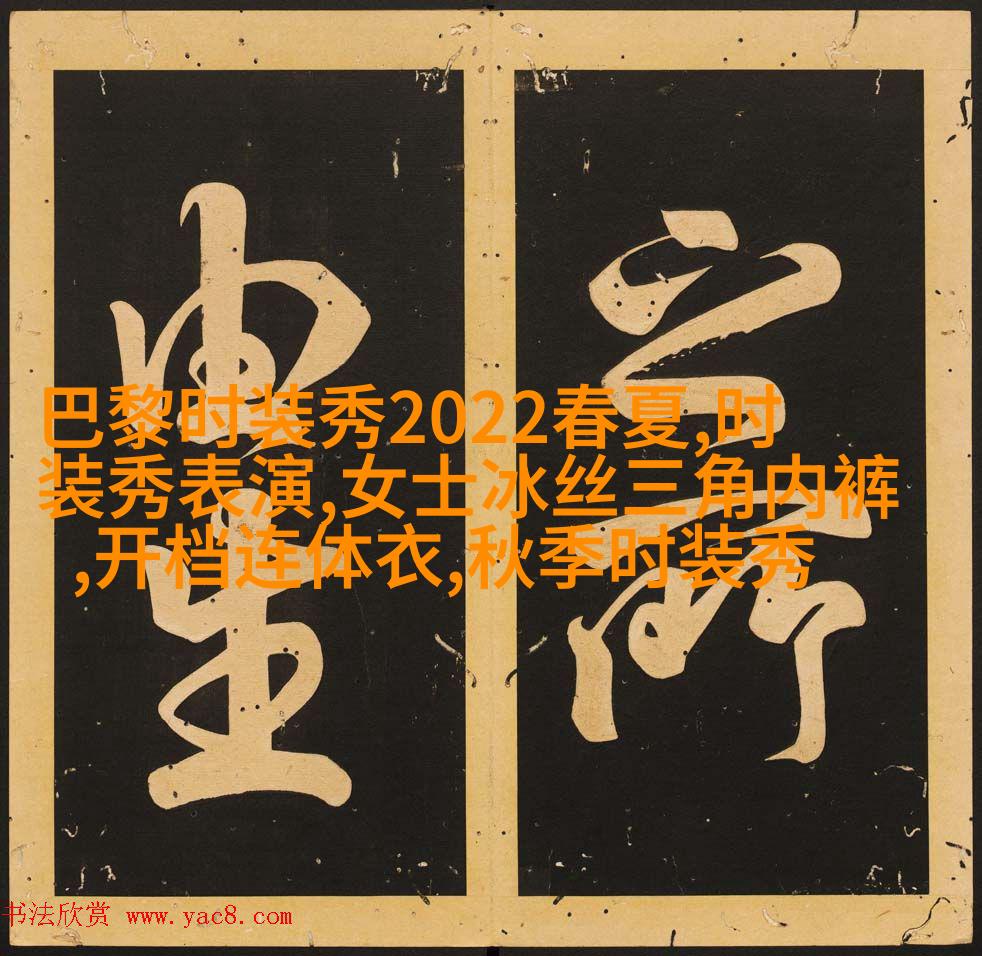 巴黎时装秀2022春夏,时
装秀表演,女士冰丝三角内裤
,开档连体衣,秋季时装秀
之所
书法欣赏 www.yac8.com